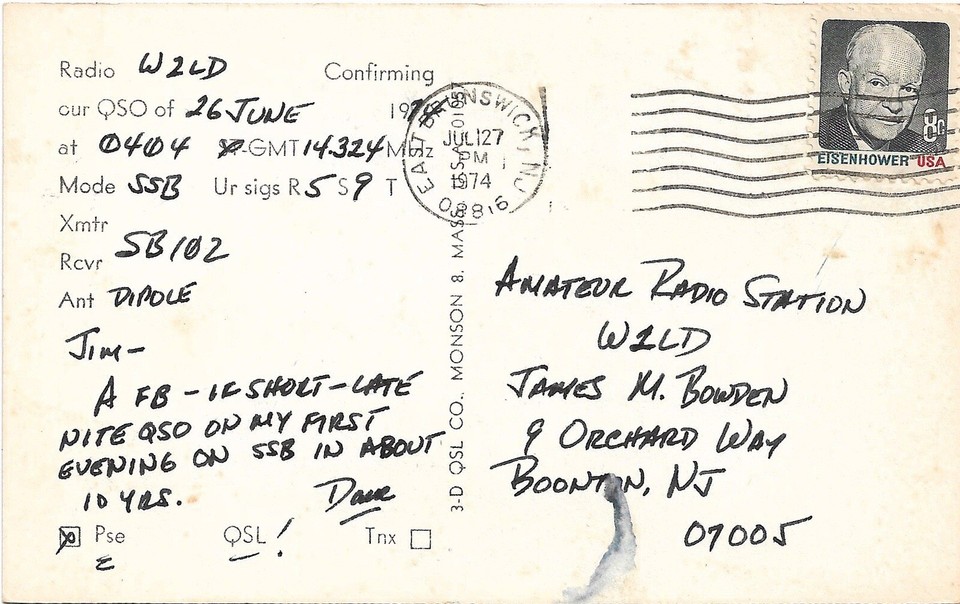 Radio W2LD Confirming
our QSO of 26 JUNE 1974
at 0404 GMT 14.324 MHz
Mode SSB Ur sigs R 5 S 9 T
Xmtr
SB102
Rcvr
Ant DIPOLE
JIM-
A FB - IF SHORT - LATE
NITE QSO ON MY FIRST
EVENING ON SSB IN ABOUT
10 YRS. Dave
Pse QSL! Tnx
3-D QSL CO., MONSON 8, MASS. USA 010
EAST BRUNSWICK, NJ
JUL 27
PM
1974
08816
8c
EISENHOWER USA
AMATEUR RADIO STATION
W2LD
JAMES M. BOWDEN
9 ORCHARD WAY
BOONTON, NJ
07005